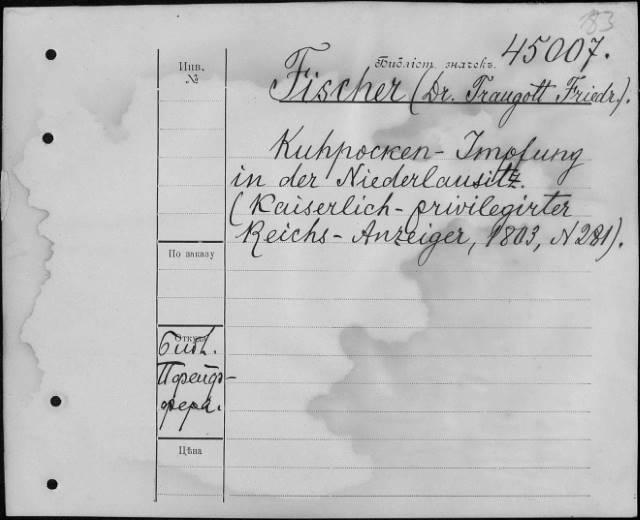 183
Инв.
№
Библіот. значекъ. 45007.
Fischer (Dr. Traugott Friedr.).
Kuhpocken-Impfung
in der Niederlausitz.
(Kaiserlich-privilegirter
Reichs-Anzeiger, 1803, N 281).
По заказу
Откуда
Библ.
Пфейф-
фера.
Цѣна